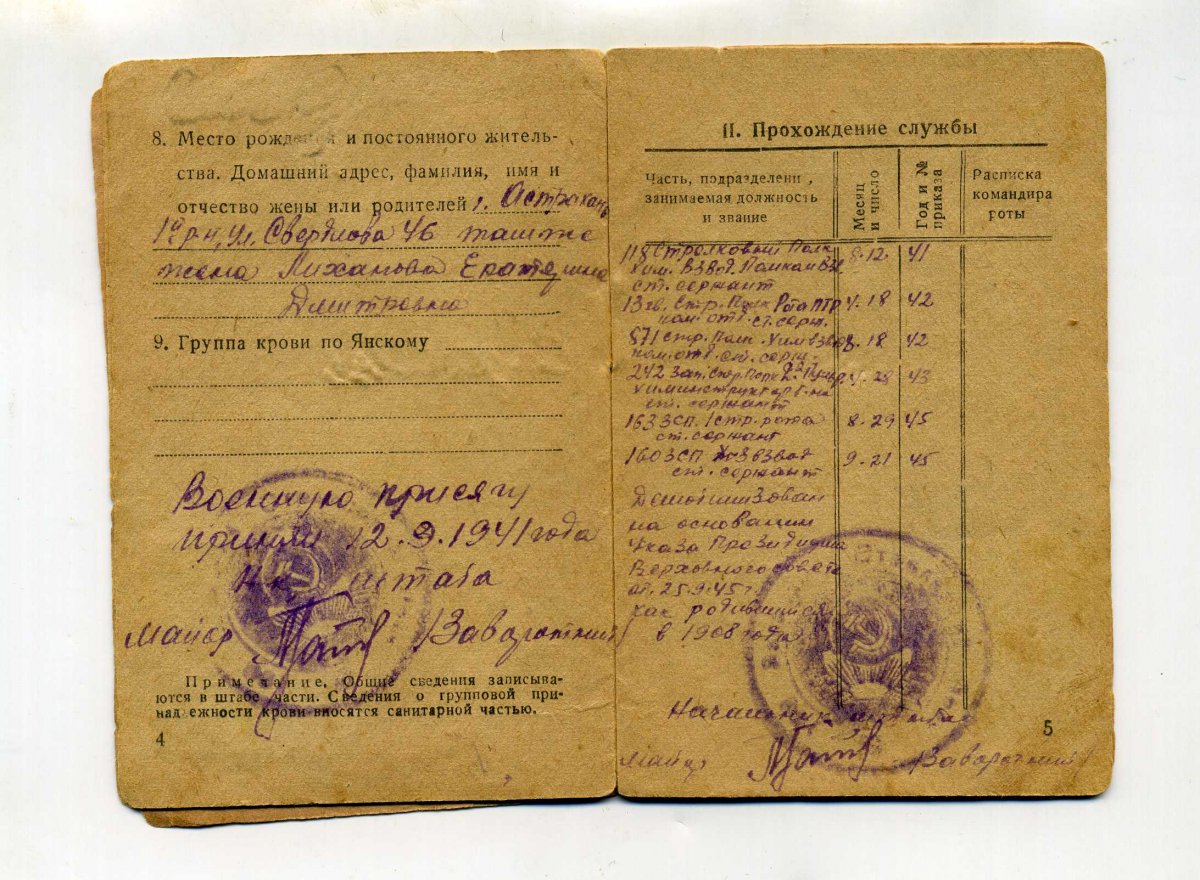 8. Место рождения и постоянного житель-
ства. Домашний адрес, фамилия, имя и
отчество жены или родителей г. Астрахань
1й р-н, ул. Свердлова 46
жена Лиханова Екатерина
Дмитровна
9. Группа крови по Янскому
Военную присягу
принял 12.9.1941 года
штаба
майор /Заворотний/
Примечание. Общие сведения записыва-
ются в штабе части. Сведения о групповой при-
над ежности крови вносятся санитарной частью.
4
II. Прохождение службы
Часть, подразделени ,
занимаемая должность
и звание
Месяц
и число
Год и №
приказа
Расписка
командира
роты
118 Стрелковый Полк 8-12 41
хим. Взвод. Помком Вз
ст. сержант
13 гв. Стр. Полк Рота ПТР 4-18 42
ком. отд. ст. серж.
871 стр. Полк. Хим взвод 8-18 42
ком. отд. ст. серж.
242 Зап. Стр. Полк 4-28 43
химинструктор б-на
ст. сержант
163 ЗСП. 1 стр. рота 8-29 45
ст. сержант
160 ЗСП взвод 9-21 45
ст. сержант
Демобилизован
на основании
Указа Президиума
Верховного совета
от. 25.9.45 г.
как родившийся
в 1908 году
Начальник штаба
майор /Заворотний/
5